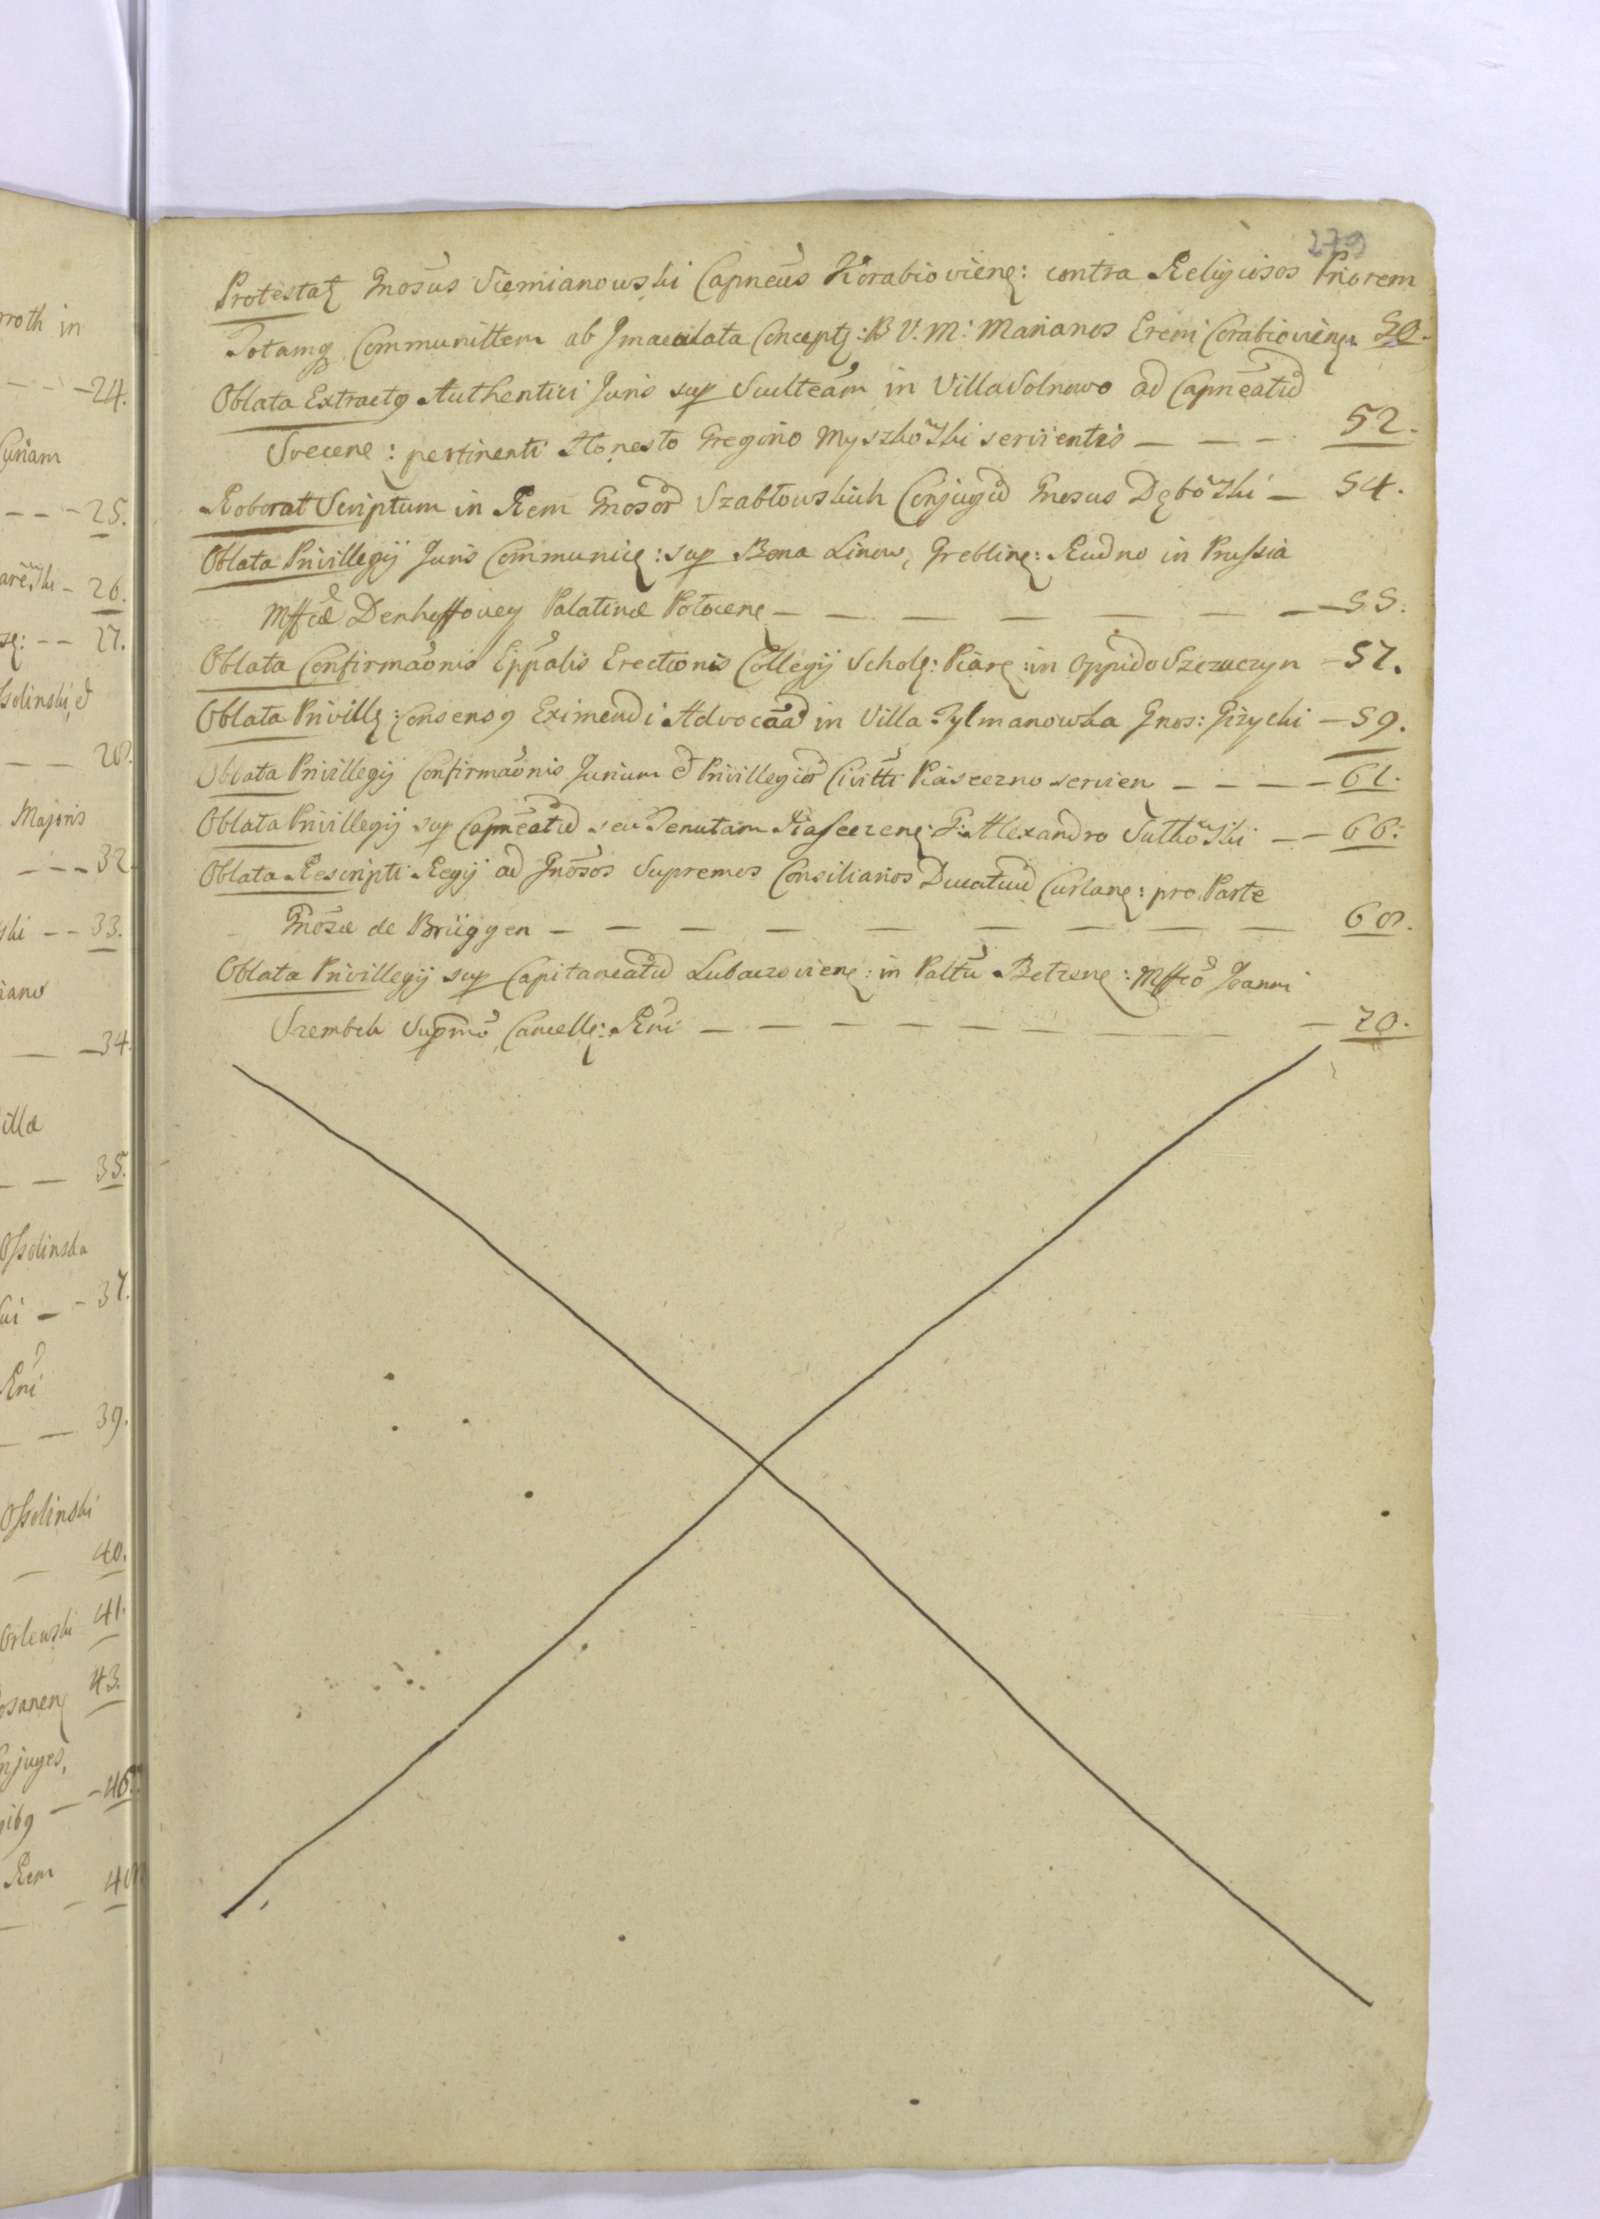 279
Protestat Gnosus Siemianowski Capneus Korabioviens: contra Religiosos Priorem
Totamq Communittem ab Imaculata Concept: B V. M: Marianos Eremi Corabioviens 50.
Oblata Extractq Authentici Juris sup Sculteam in Villa Solnowo ad Capneatu
Svecene: pertinenti Honesto Gregorio Myszkowski servientis — — — 52.
Roborat Scriptum in Rem Gnosor Szabłowskich Conjugu Gnosus Dębowski — 54.
Oblata Privillegij Juris Communic: sup Bona Linow, Greblin: Rudno in Prussia
Mffcæ Denhoffowey Palatinæ Polocene — — — — — — 55.
Oblata Confirmaonis Eppalis Erectionis Collegij Schol: Piar: in Oppido Szczuczyn — 57.
Oblata Privill: Consensq Eximendi Advocaa in Villa Tylmanowka Gnos: Giżycki — 59.
Oblata Privillegij Confirmaonis Jurium et Privillegior Civitti Piaseczno servien — — — — 61.
Oblata Privillegij sup Capneatu seu Tenutam Piaseczene: G: Alexandro Sułkowski — — 66.
Oblata Rescripti Regij ad Gnosos Supremos Consiliarios Ducatuu Curlan: pro Parte
Gnosæ de Brüggen — — — — — — — — — 68.
Oblata Privillegij sup Capitaneatu Lubaczoviene: in Paltu Betzene: Mffco Joanni
Szembek Supmo Cancell: Rni — — — — — — — — — 70.
rroth in
— — — 24.
Curiam
— — — 25.
— 26.
— — 27.
solinski, et
— — 28.
Majoris
— — — 32.
ski — — 33.
iano
— — 34.
illæ
— — 35.
Ossolinska
— — 37.
Rni
— — 39.
Ossolinski
— 40.
Orlewski 41.
osanen 43.
njuges,
ibq — — 46.
Rem 48